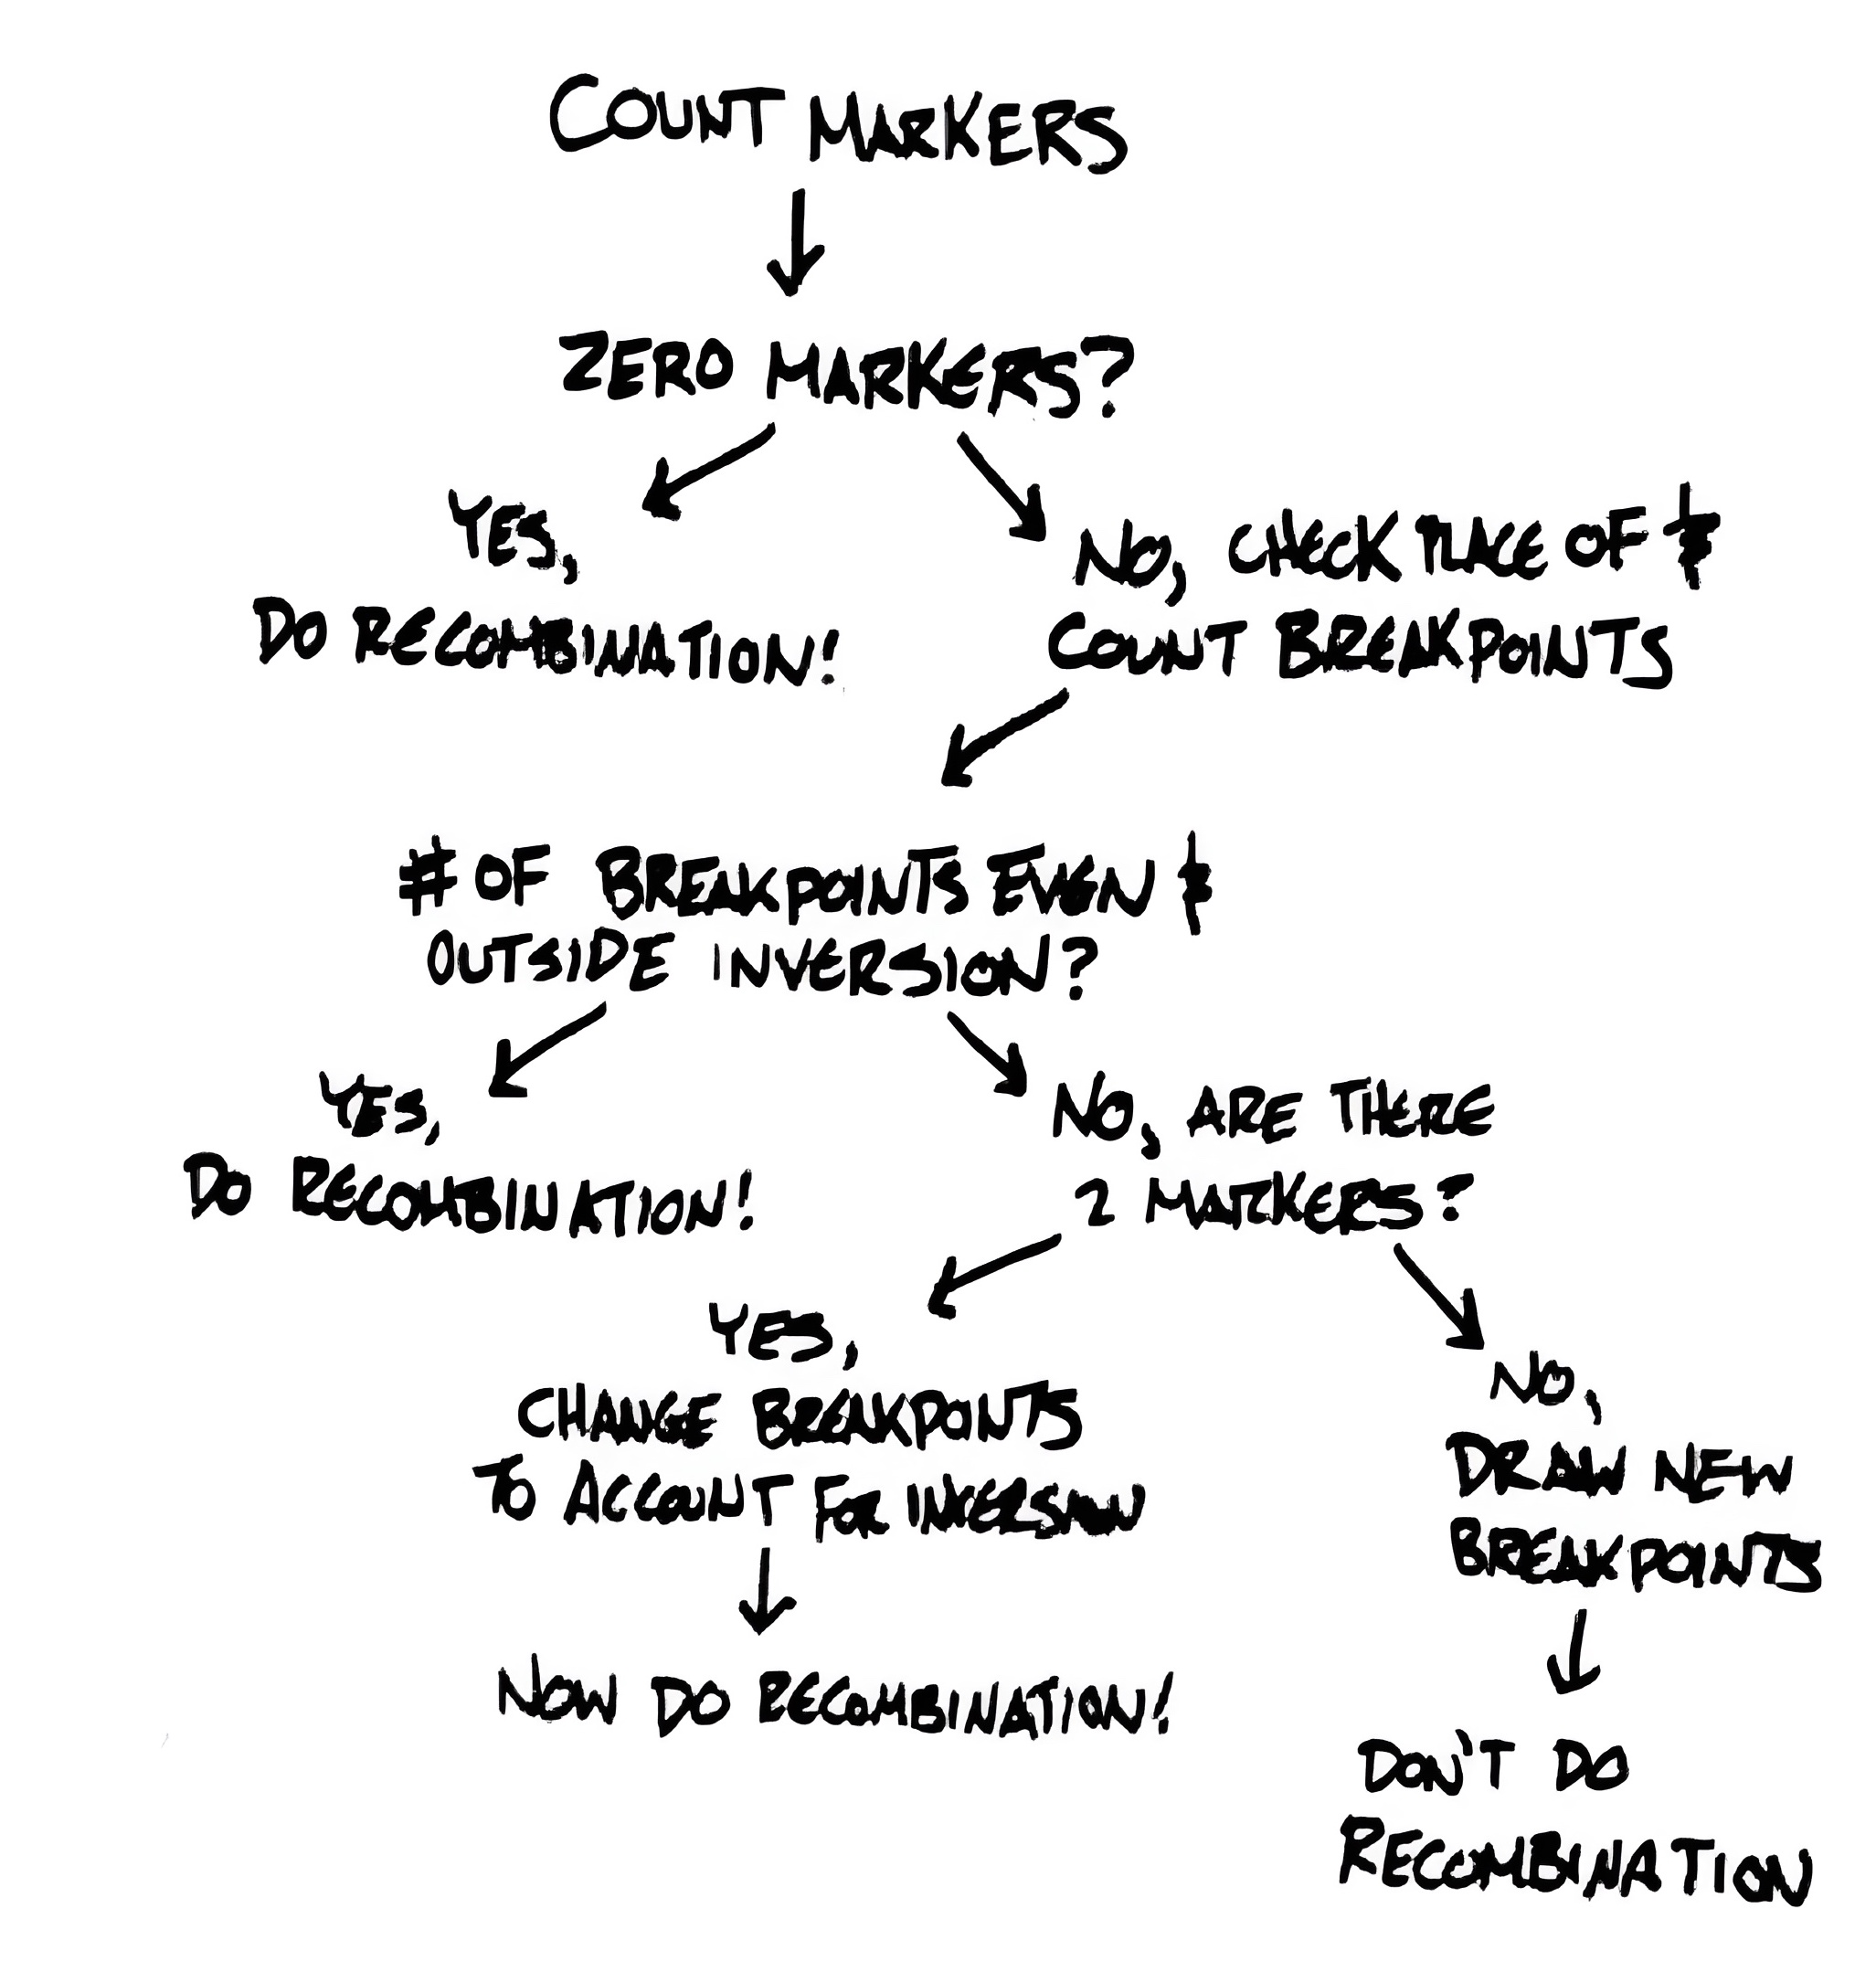 COUNT MARKERS
ZERO MARKERS?
YES,
DO RECOMBINATION!
NO, CHECK PLACE OF &
COUNT BREAKPOINTS
# OF BREAKPOINTS EVEN &
OUTSIDE INVERSION?
YES,
DO RECOMBINATION!
NO, ARE THERE
2 MARKERS?
YES,
CHANGE BREAKPOINTS
TO ACCOUNT FOR INVERSION
NOW DO RECOMBINATION!
NO,
DRAW NEW
BREAKPOINTS
DON'T DO
RECOMBINATION